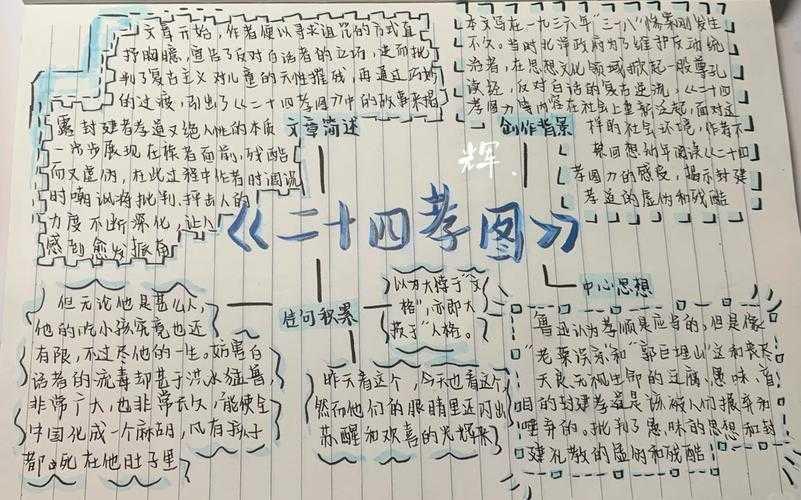 文章开始，作者便以寻求诅咒的方式直
抒胸臆，宣告了反对白话者的立场，进而批
判了复古主义对儿童的天性摧残，再通过
的过痕，引出了《二十四孝图》中的故事来揭
露封建者孝道灭绝人性的本质
一步步展现在读者面前，残酷
而又虚伪，在此过程中作者时而调侃
时嘲讽将批判、抨击人的
力度不断深化，让人
感到愈发振奋
文章简述
本文写在一九三六年"三一八"惨案刚发生
不久。当时北洋政府为了维护反动统
治者，在思想文化领域掀起一股尊孔
读经，反对白话的复古逆流，《二十四
孝图》等内容在社会上重新泛起，面对这
样的社会环境，作者不
禁回想幼年阅读《二十四
孝图》的感受，揭示封建
孝道的虚伪和残酷
创作背景
辉.
《二十四孝图》
佳句积累
中心思想
但无论他是甚么人，
他的吃小孩究竟也还
有限，不过尽他的一生。妨害白
话者的流毒却甚于洪水猛兽，
非常广大，也非常长久，能使全
中国化成一个麻胡，凡有孩子
都死在他肚子里
以为大悖于"文
格"，亦即大
损于"人格。
昨天看这个，今天也看这个，
然而他们的眼睛里还闪出
苏醒和欢喜的光辉来
鲁迅认为孝顺是应当的，但是像
"老莱娱亲"和"郭巨埋儿"这种丧尽
天良无视生命的迂腐、愚昧、盲
目的封建孝道是该被人们摒弃和
唾弃的。批判了愚昧的思想和封
建礼教的虚伪和残酷